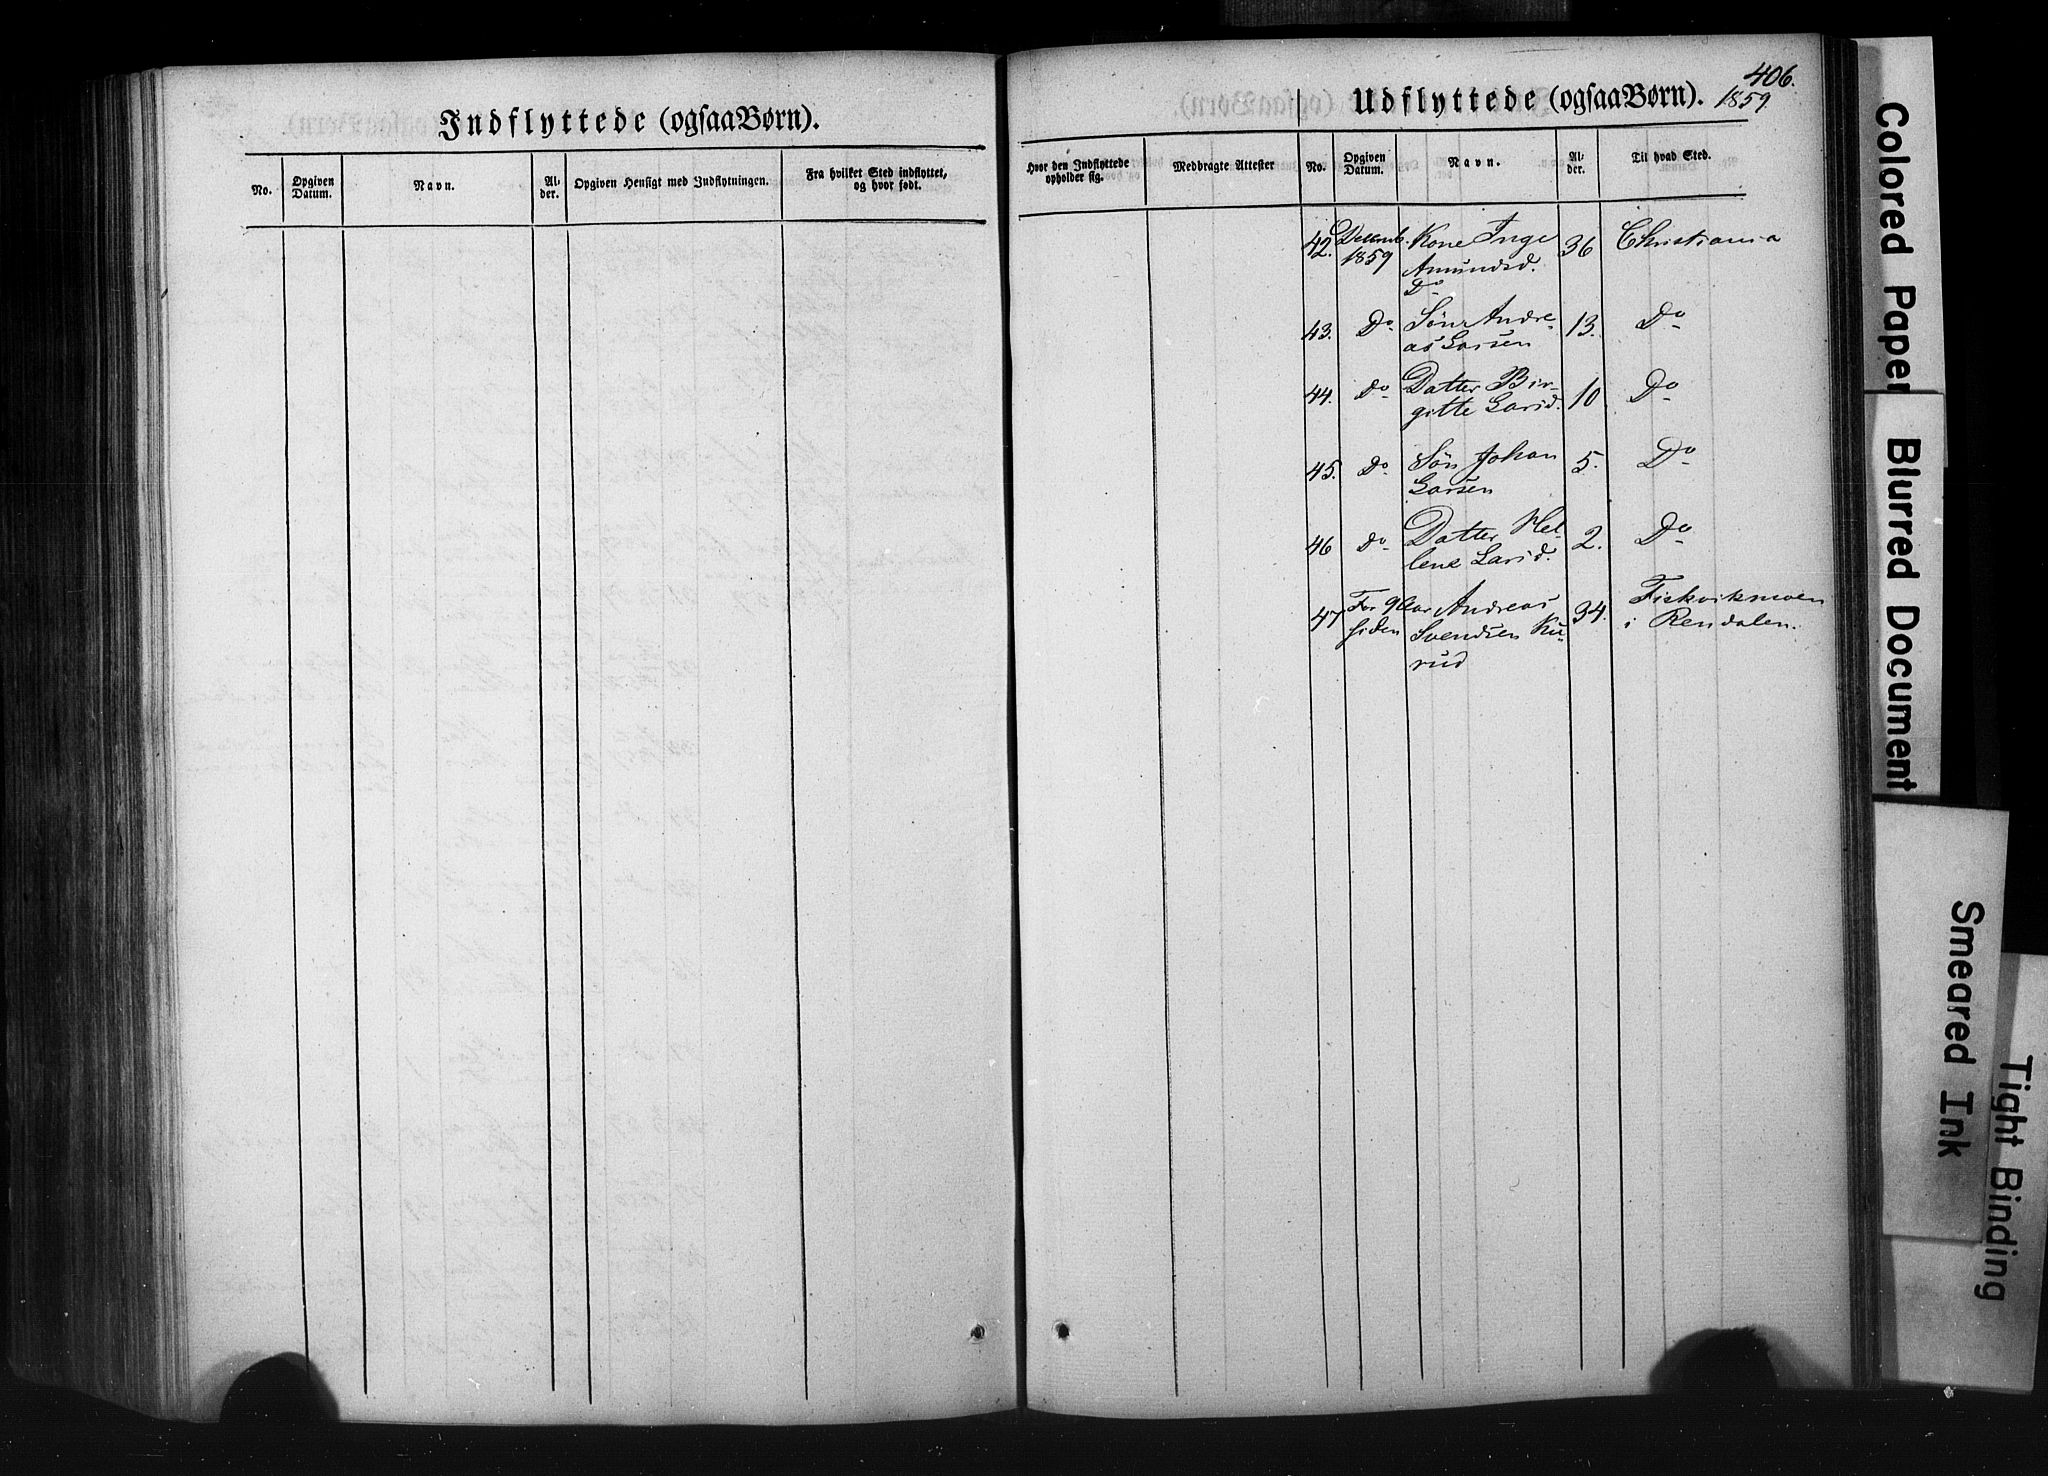 Indflyttede (ogsaa Børn).
No.
Opgiven Datum.
Navn.
Al-der.
Opgiven Hensigt med Indflytningen.
Fra hvilket Sted indflyttet, og hvor født.
406.
1859
Udflyttede (ogsaa Børn).
Hvor den Indflyttede opholder sig.
Medbragte Attester
No.
Opgiven Datum.
Navn.
Al-der.
Til hvad Sted.
42. Decemb. Kone Inge 36 Christiania
1859 Amundsd.
Do
43. Do Søn Andre- 13. Do
as Larsen
44. Do Datter Bir- 10 Do
gitte Larsd.
45. Do Søn Johan 5. Do
Larsen
46 Do Datter Hel- 2. Do
lene Larsd.
47 For 9 Aar Andreas 34. Fiskvikmoen
siden Svendsen Ku- i Rendalen.
rud
Colored Paper
Blurred Document
Smeared Ink
Tight Binding